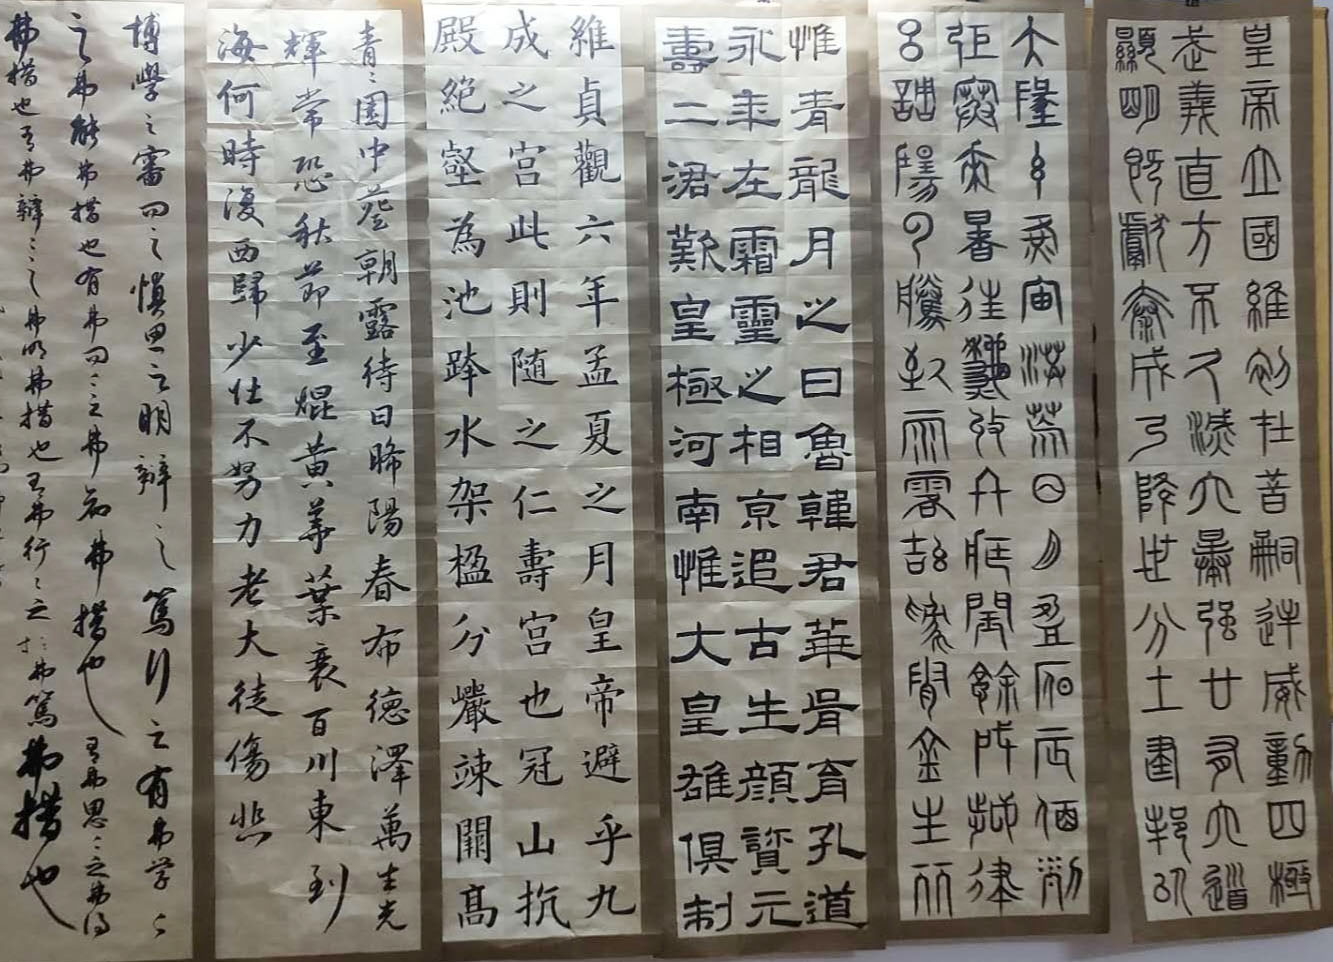 皇帝立國維初在昔嗣逆威動四極
武義直方不久滅六暴强廿有六道
顯明既獻泰成乃降世分土建邦以
天地玄黃宙洪荒日月盈昃辰宿列
張寒來暑往秋收冬藏閏餘成歲律
呂調陽雲騰致雨露結為霜金生麗
惟青龍月之曰魯韓君華胥育孔道
永年左霜靈之相京追古生顔寶元
壽二涒歎皇極河南惟大皇雄俱制
維貞觀六年孟夏之月皇帝避乎九
成之宮此則隨之仁壽宮也冠山抗
殿絕壑為池跨水架楹分巖竦闕高
青〻園中葵朝露待日晞陽春布德澤萬生光
輝常恐秋節至焜黃華葉衰百川東到
海何時復西歸少壯不努力老大徒傷悲
博學之審問之慎思之明辨之篤行之有弗學〻
之弗能弗措也有弗問〻之弗知弗措也有弗思〻之弗得
弗措也有弗辨〻之弗明弗措也有弗行〻之弗篤弗措也